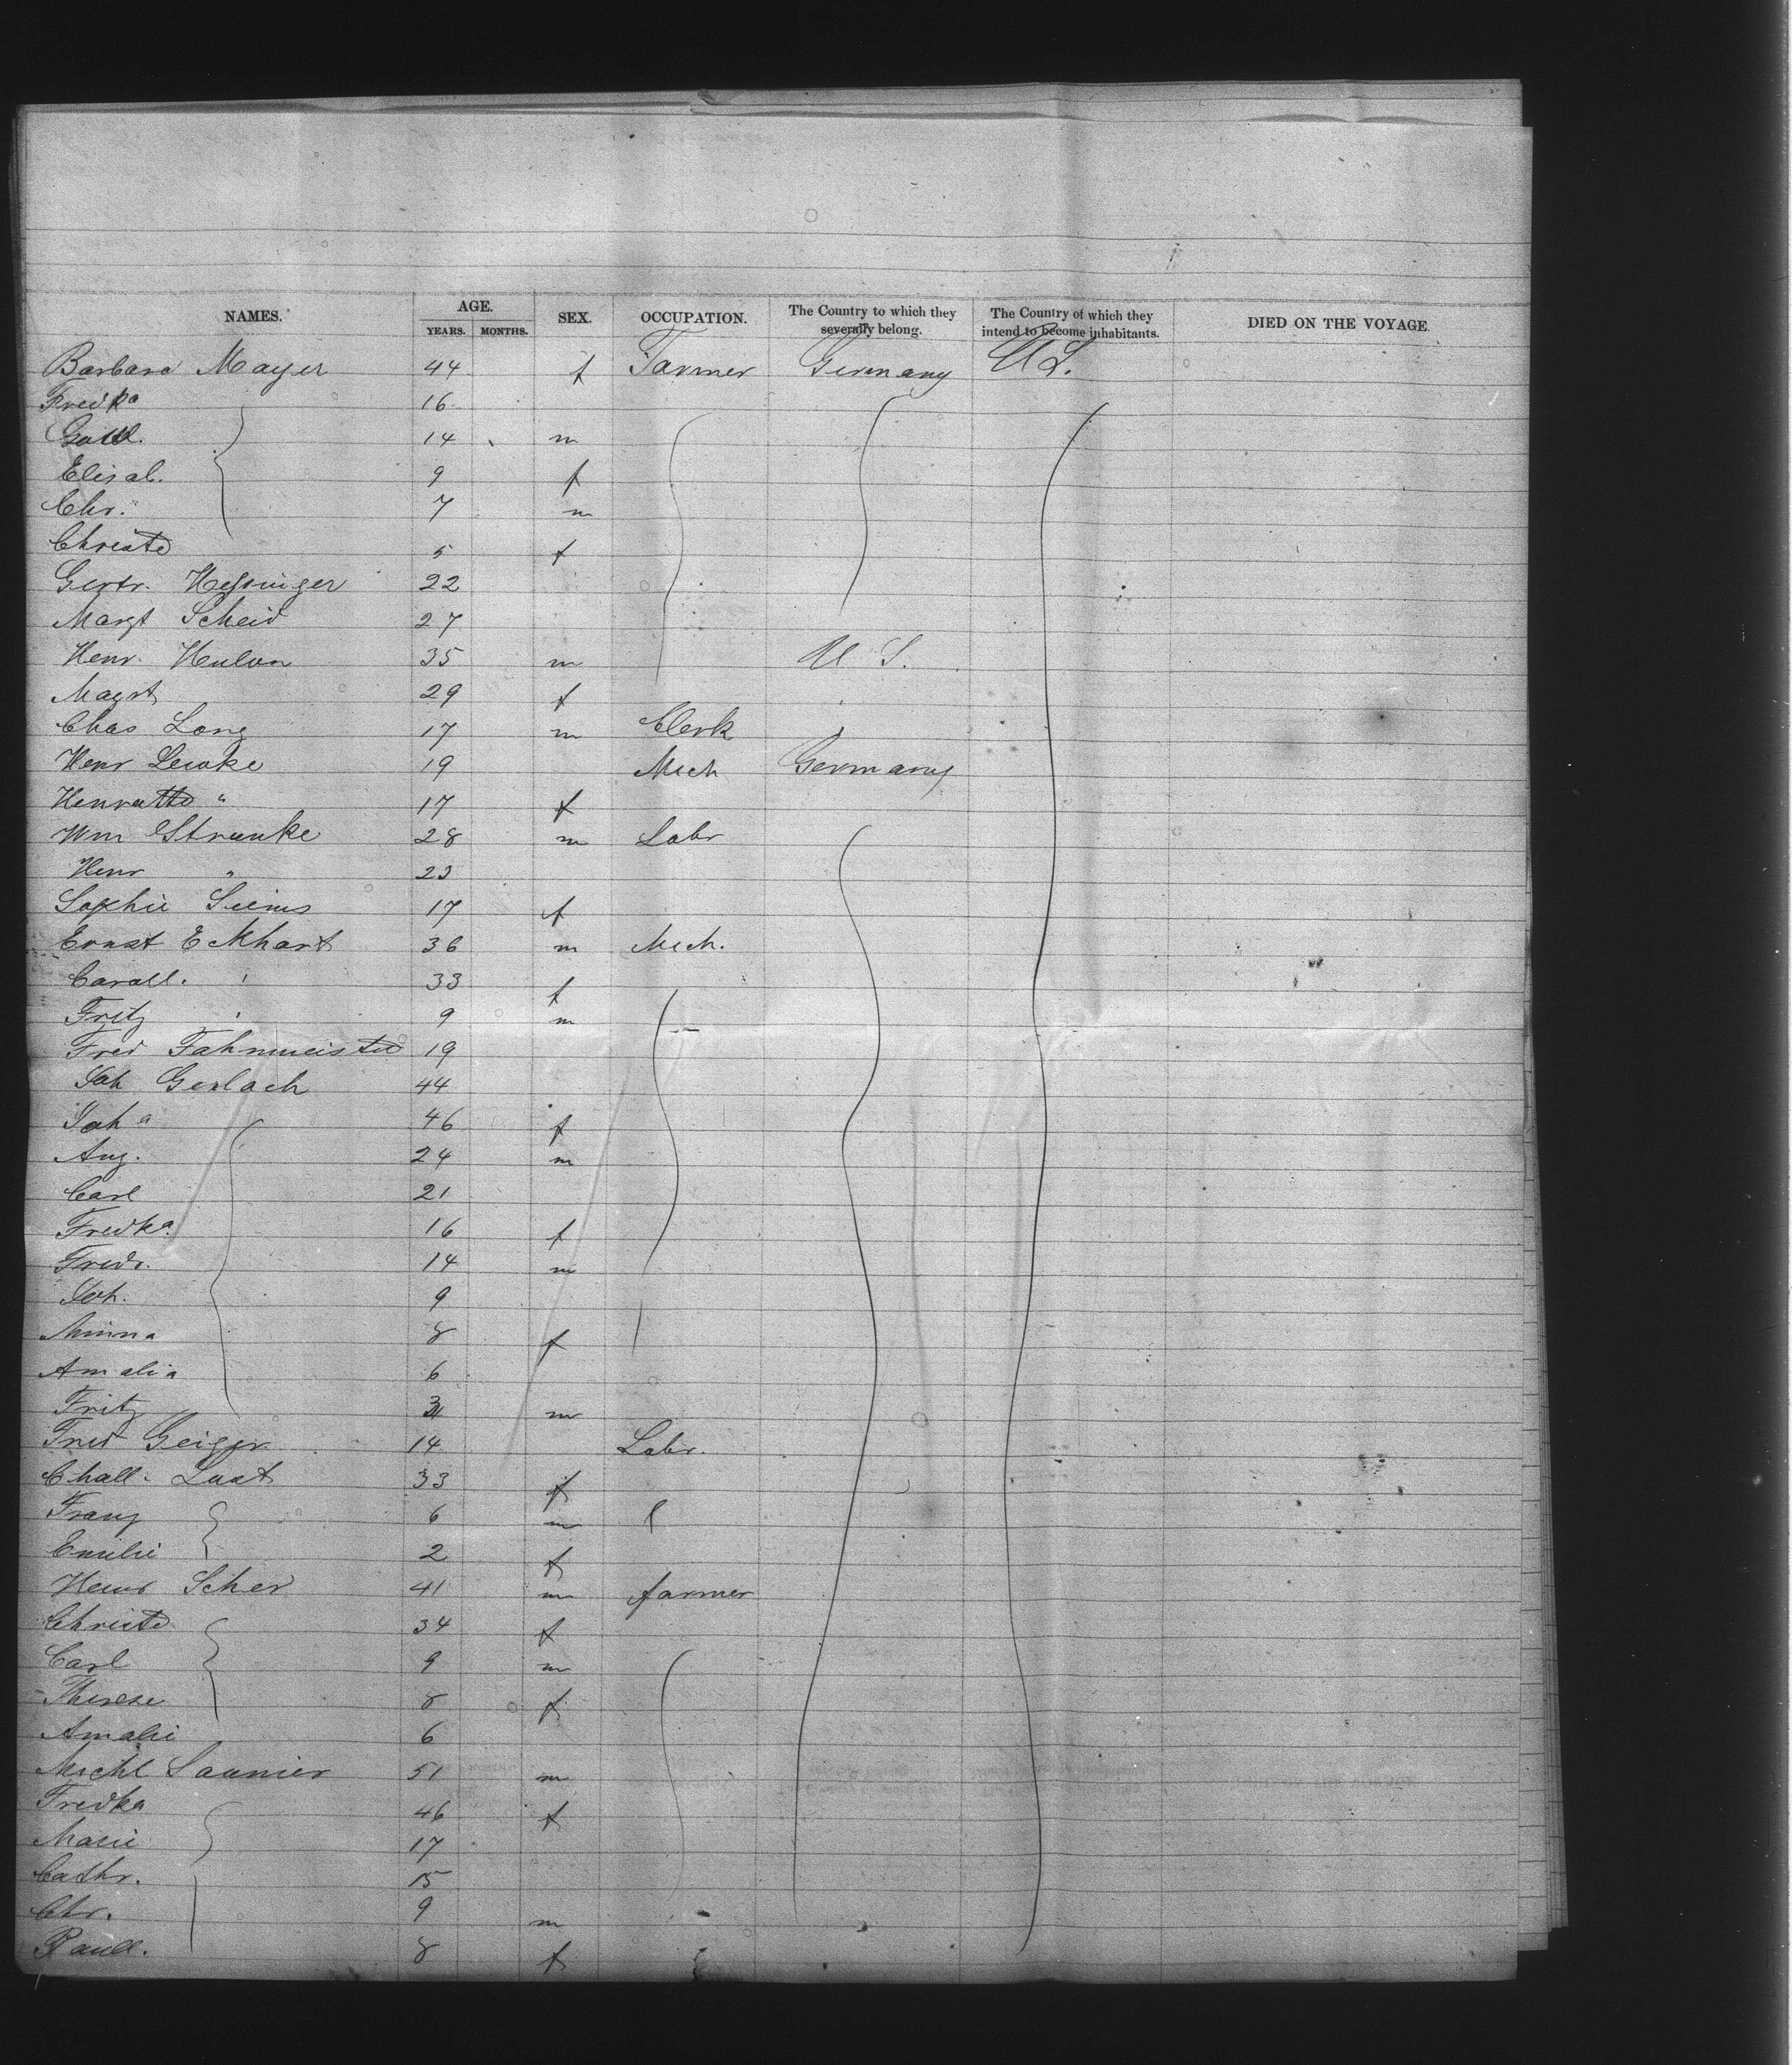 NAMES. AGE. SEX. OCCUPATION. The Country to which they severally belong. The Country of which they intend to become inhabitants. DIED ON THE VOYAGE.
YEARS. MONTHS.
Barbara Mayer 44 f Farmer Germany U S.
Fredka 16
Gottl. 14 m
Elisab. 9 f
Chr. 7 m
Christe 5 f
Gertr. Hessinger 22
Margt Scheid 27
Henr. Heulon 35 m U S.
Magrt 29 f
Chas Long 17 m Clerk
Henr Lewke 19 Mech Germany
Henrette " 17 f
Wm Strunke 28 m Labr
Henr " 23
Sophie Siems 17 f
Ernst Eckhart 36 m Mech.
Caroll. " 33 f
Fritz " 9 m
Fred Fahrmeister 19
Joh Gerlach 44
Joha 46 f
Aug. 24 m
Carl 21
Fredka. 16 f
Fredr. 14 m
Joh. 9
Minna 8 f
Amalia 6
Fritz m
Fred Geiger 14 Labr.
Chall. Lust 33 f
Franz 6 m
Emilie 2 f
Henr Scher 41 m farmer
Christe 34 f
Carl 9 m
Therese 8 f
Amalie 6
Michl Saunier 51 m
Fredka 46 f
Marie 17
Cathr. 15
Chr. 9 m
Paull. 8 f